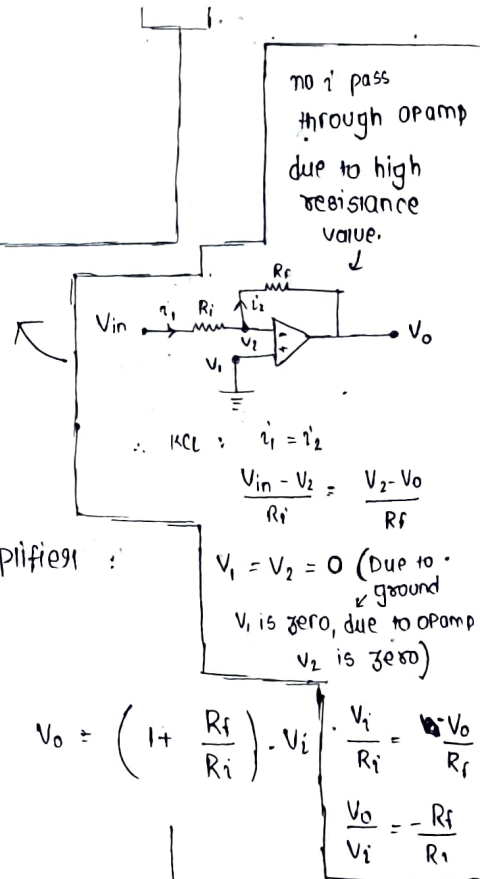 no i pass
through opamp
due to high
resistance
value.
Rf
Vin i1 Ri i2
V2
V1
- +
Vo
∴ KCL : i1 = i2
Vin - V2 / Ri = V2 - Vo / Rf
plifier :
V1 = V2 = 0 (Due to
ground
V1 is zero, due to opamp
V2 is zero)
Vo = (1 + Rf / Ri) . Vi
Vi / Ri = -Vo / Rf
Vo / Vi = - Rf / R1